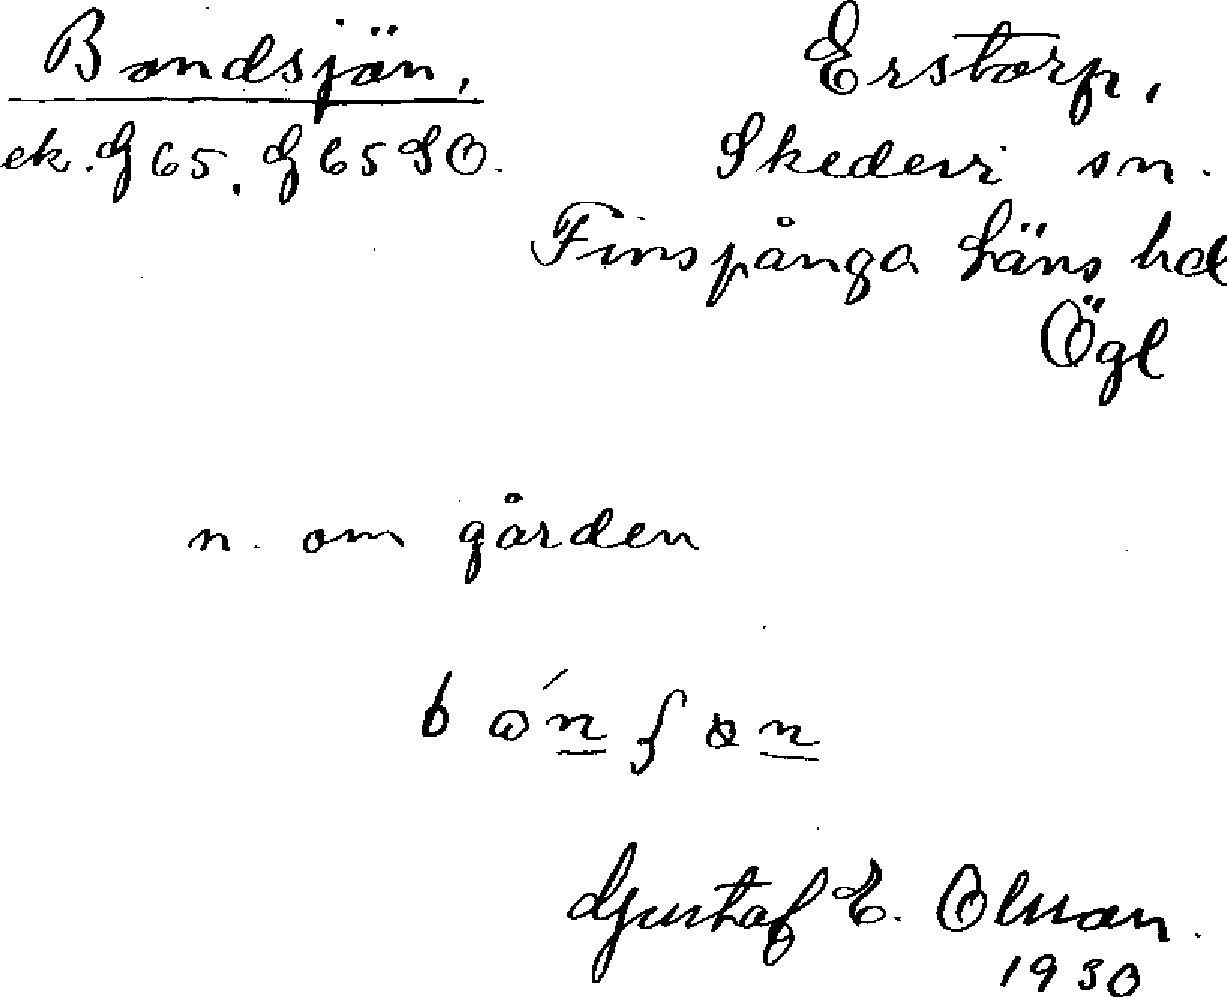 Bandsjön,
ek. G 65. G 65 SO.
Erstorp,
Skedevi sn.
Finspånga läns hd
Ögl
n. om gården
Gustaf E. Olsson.
1930